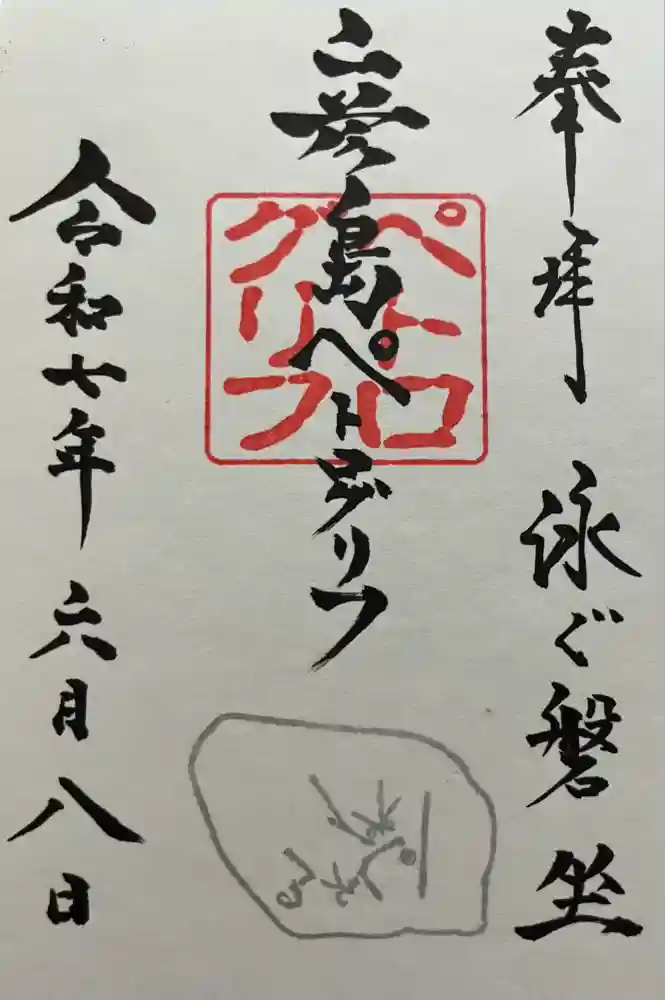 奉拝 泳ぐ磐坐
彦島ペトログリフ
ペトロ
グリフ
令和七年 六月 八日